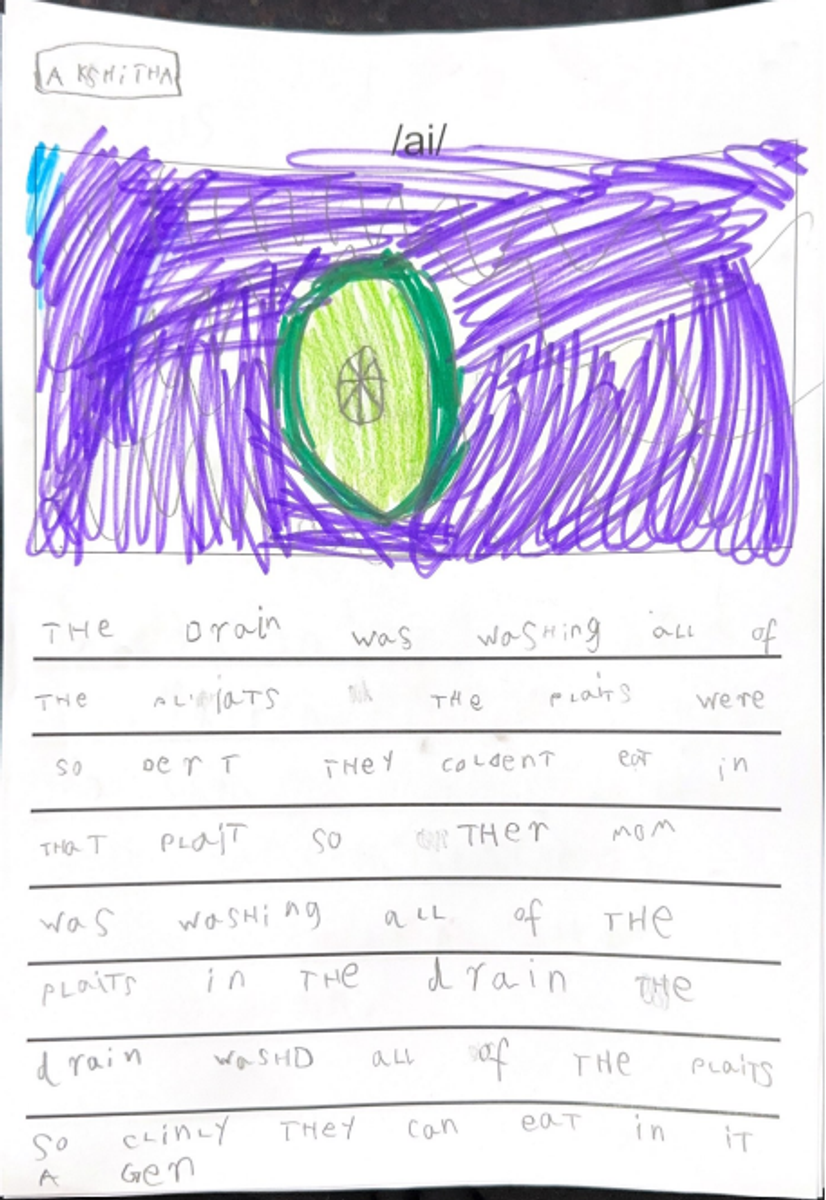 AKSHITHA
/ai/
THe Drain was wasHing aLL of
THe THe pLaits were
so Dert THeY coLDent eat in
THaT pLaiT so THer mom
was wasHing aLL of THe
pLaiTs in THe drain THe
drain wasHD aLL of THe pLaiTs
So cLinLY THeY can eaT in iT
A Gen